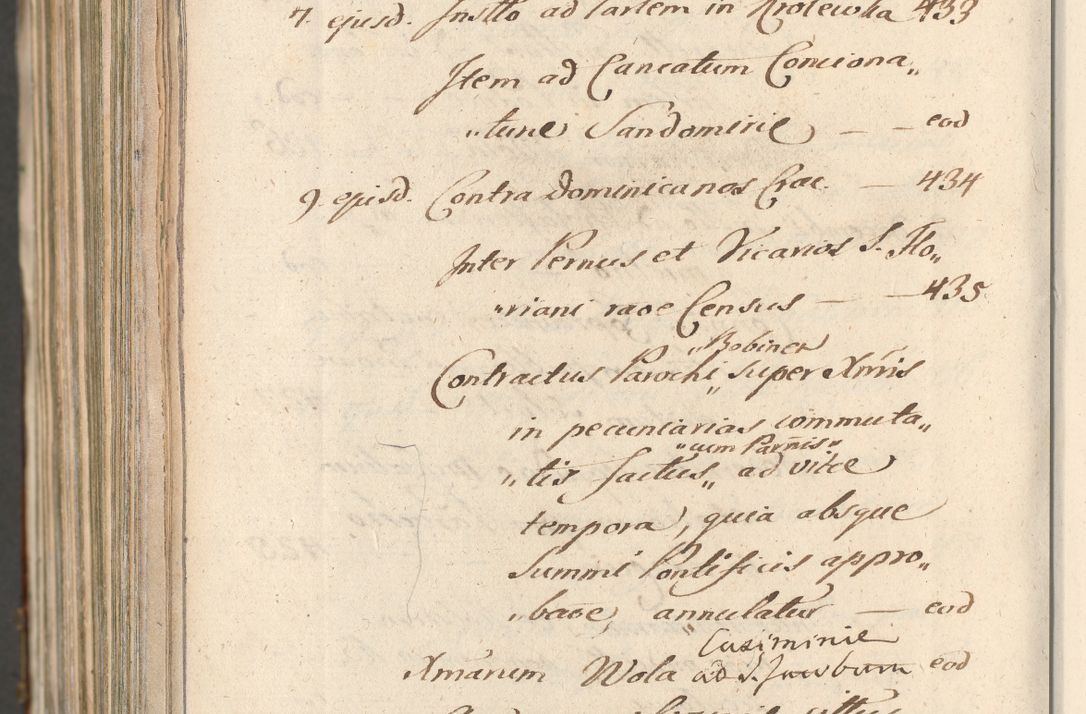 7. ejusd. Instto ad Partem in Krolewka 433
Item ad Cancatum Conciona„
„tune Sandomirie — — eod
9. ejusd. Contra Dominicanos Crac. — 434
Inter Pernus et Vicarios S. Flo„
„riani raoe Census — — 435
„Bobinen
Contractus Parochi „ super Xmis
in pecuniarias commuta„
„cum Parñis„
„tis factus„ ad vitæ
tempora, quia absque
Summi Pontificis appro„
„baoe, annulatur — eod
Casimiriæ
Xmarum Wola ad S. Jacobum eod